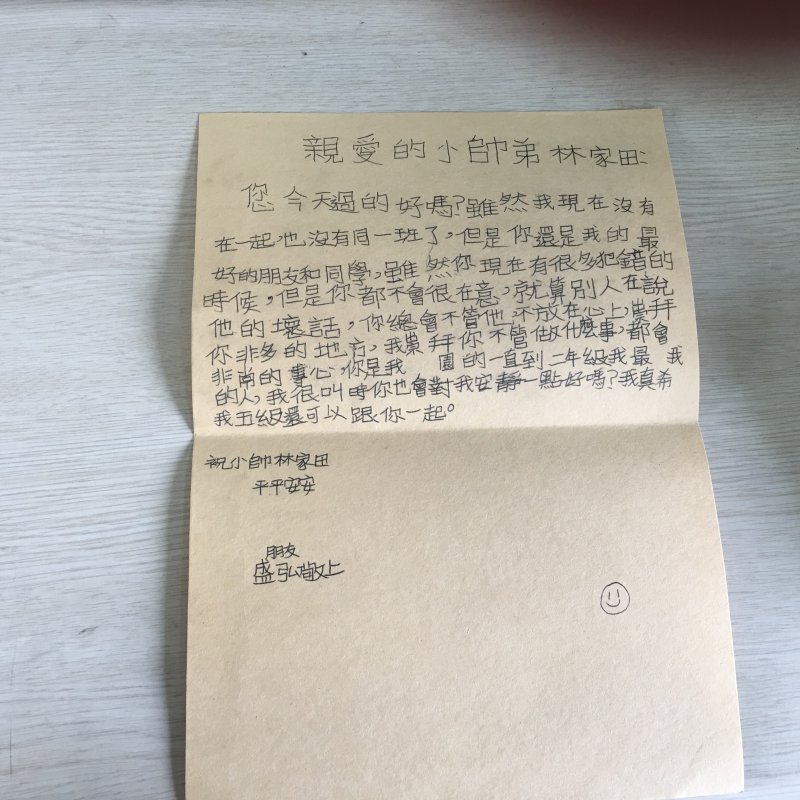 親愛的小帥弟林家田:
您今天過的好嗎?雖然我現在沒有
在一起,也沒有同一班了,但是你還是我的最
好的朋友和同學,雖然你現在有很多犯錯的
時候,但是你都不會很在意,就算別人在說
他的壞話,你總會不管他,不放在心上,崇拜
你非多的地方,我崇拜你不管做什麼事,都會
非常的專心,你是我 園的一直到二年級我最 我
的人,我很叫時你也會對我安靜一點好嗎?我真希
我五級還可以跟你一起。
祝小帥林家田
平平安安
朋友
盛弘敬上